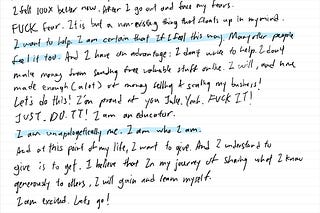 I felt 100x better now. After I go out and face my fears.
FUCK fear. It is but a non-existing thing that floats up in my mind.
I want to help. I am certain that if I feel this way, Many other people
feel it too. And I have an advantage: I don't have to help. I don't
make money from sending free valuable stuff online. I will, and have
made enough (a lot) of money selling & scaling my business!
Let's do this! I'm proud of you Jule. Yeah. FUCK IT!
JUST. DO. IT! I am an educator.
I am unapologetically me. I am who I am.
And at this point of my life, I want to give. And I understand to
give is to get. I believe that in my journey of sharing what I know
generously to others, I will gain and learn myself.
I am excited. Let's go!